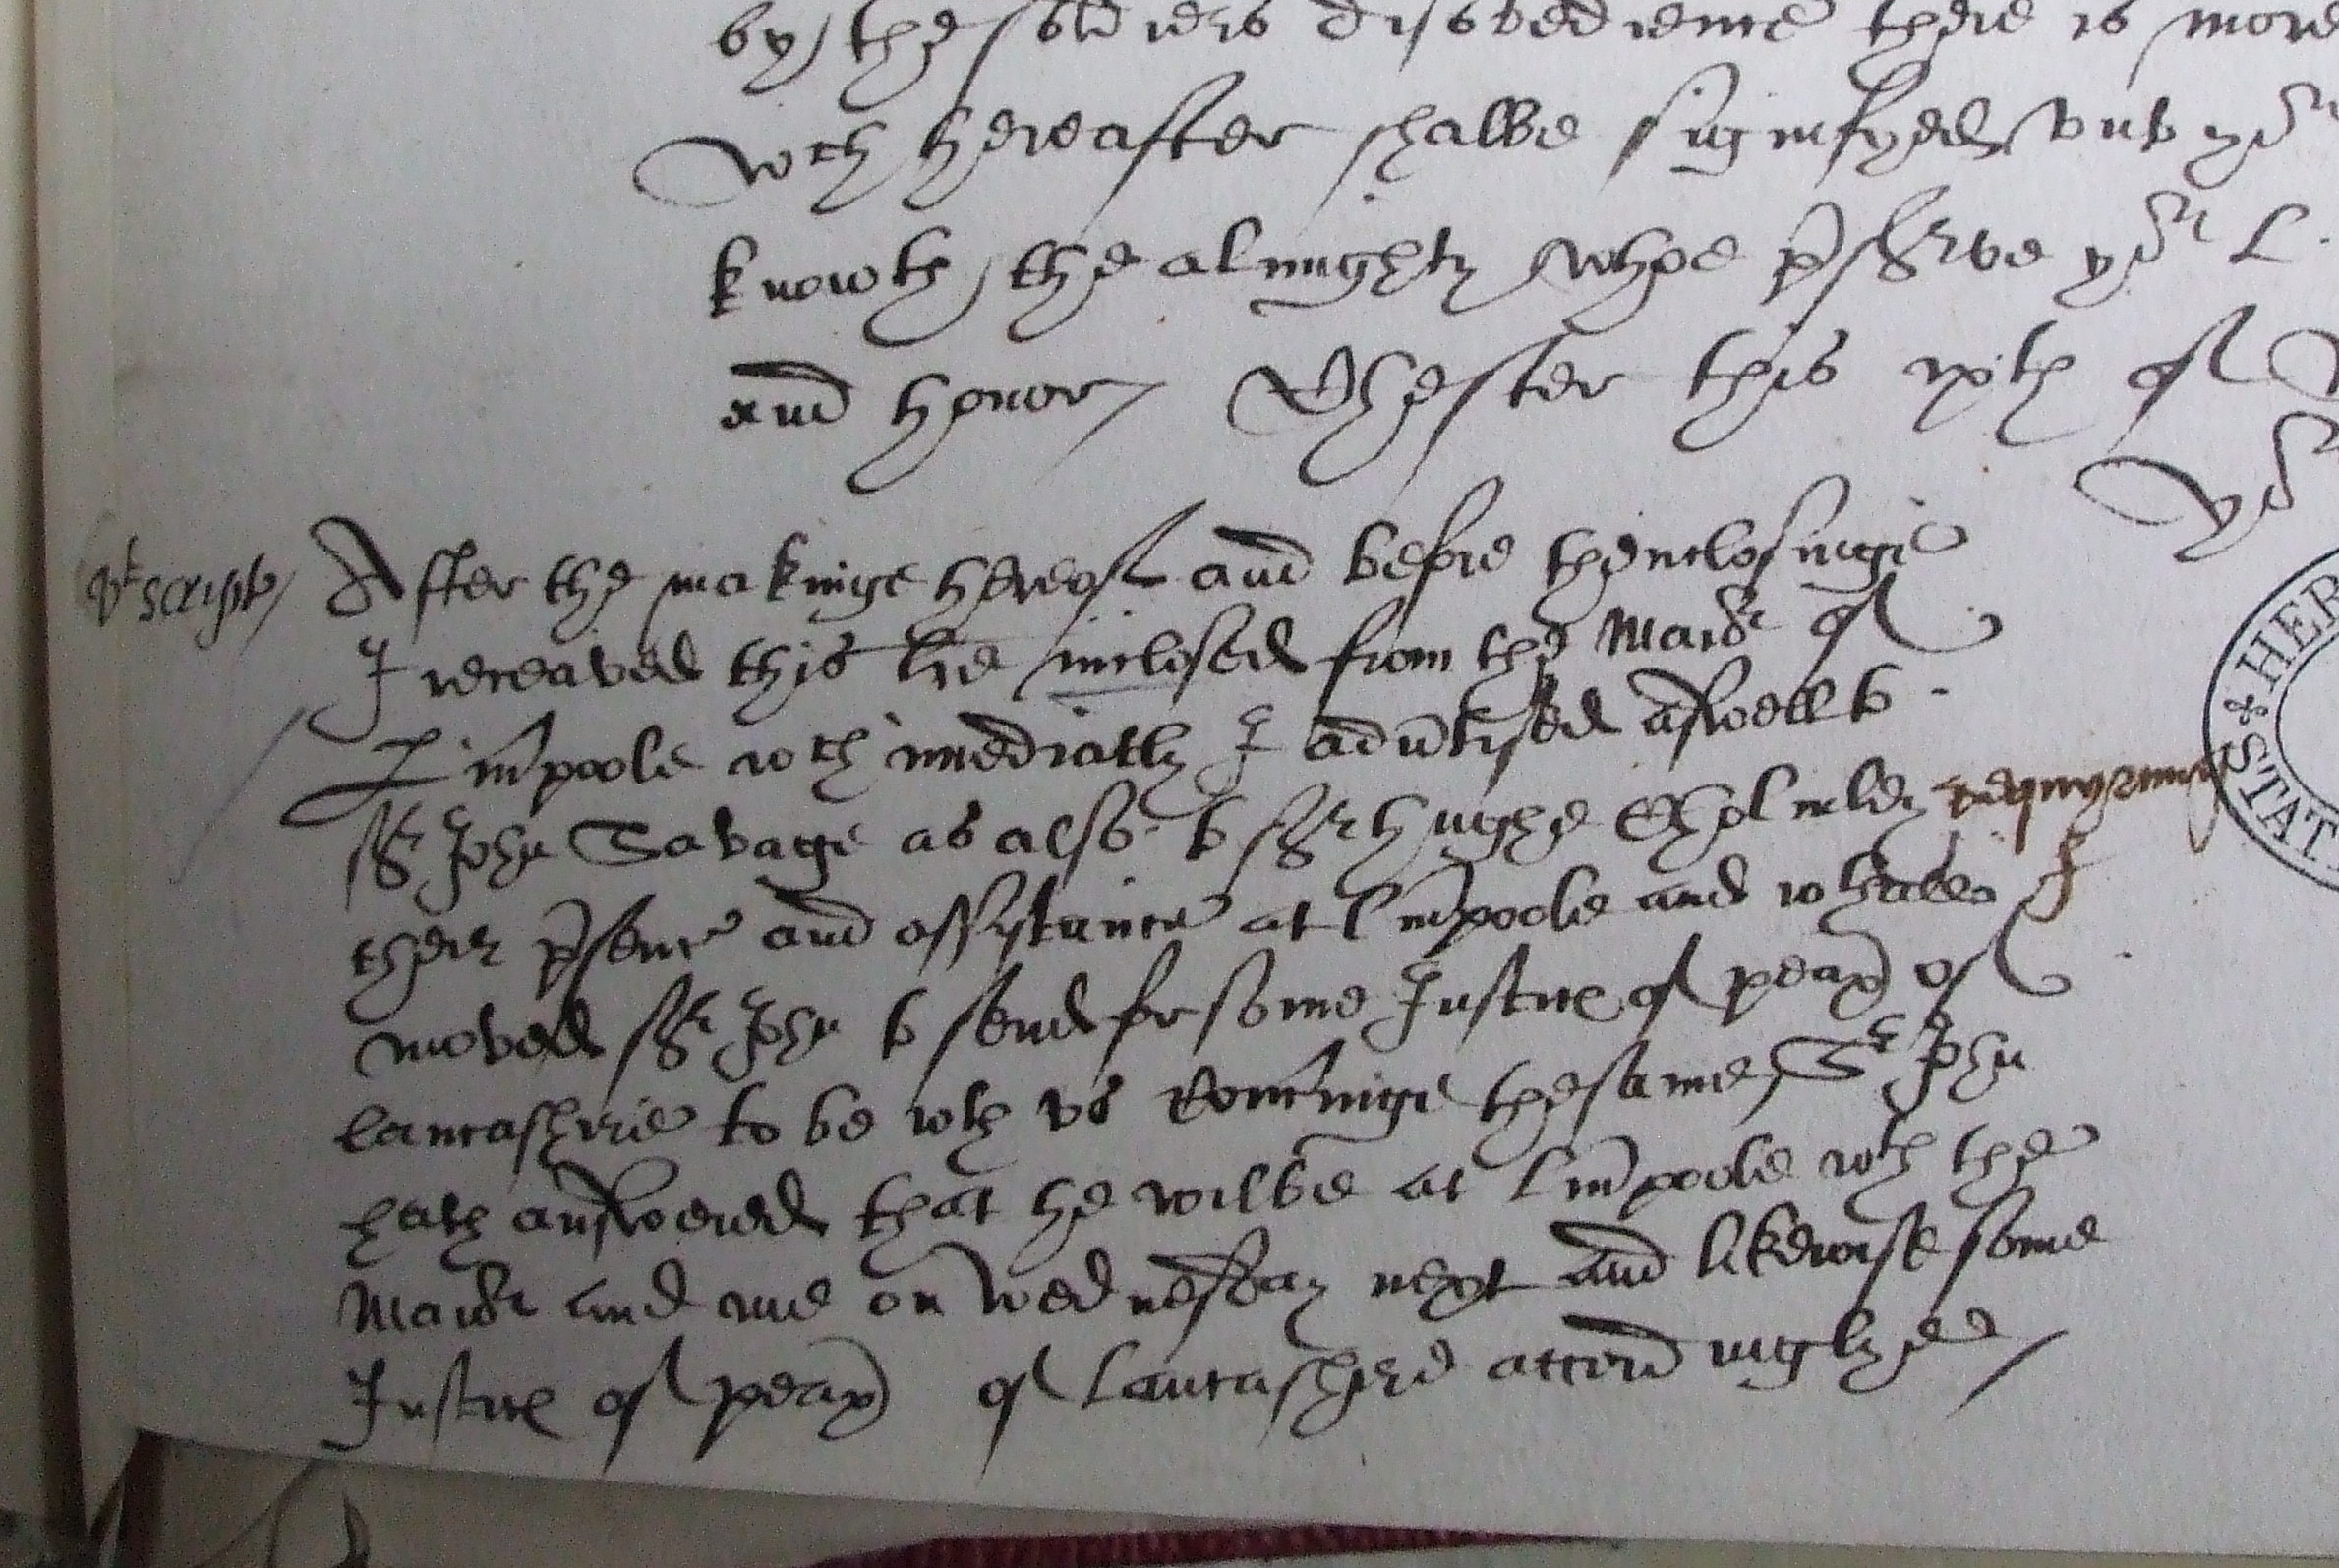 by the soldiers disobedience there is more
wch hereafter shalbe signifyed vnto yor
knowth the almighty whoe pserve yor L.
and honor / Chester this xxth of
yor
Pt script / After the makinge hereof and before thenclosinge
I receaved this lre inclosed from the Maior of
Lirpoole wch imediatly I aduertised aswell to
Sr John Savage as also to Sr hughe Cholmley requyringe
their psence and assystance at lirpoole and whall I
moved Sr John to send for some Justice of peax of
lancashire to be wth vs touchinge the same / Sr John
hath answered that he wilbe at lirpoole wth the
Maior and me on wednesday next and likewise some
Justice of peax of lancashire accordinglye /
HER
STAT